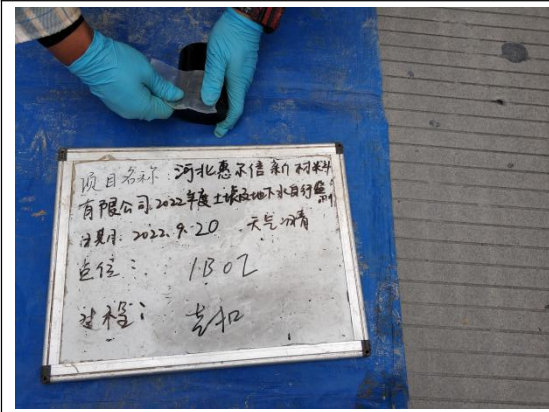 项目名称：河北惠尔信新材料
有限公司2022年度土壤及地下水自行监测
日期：2022.9.20 天气：晴
点位：1B02
过程：